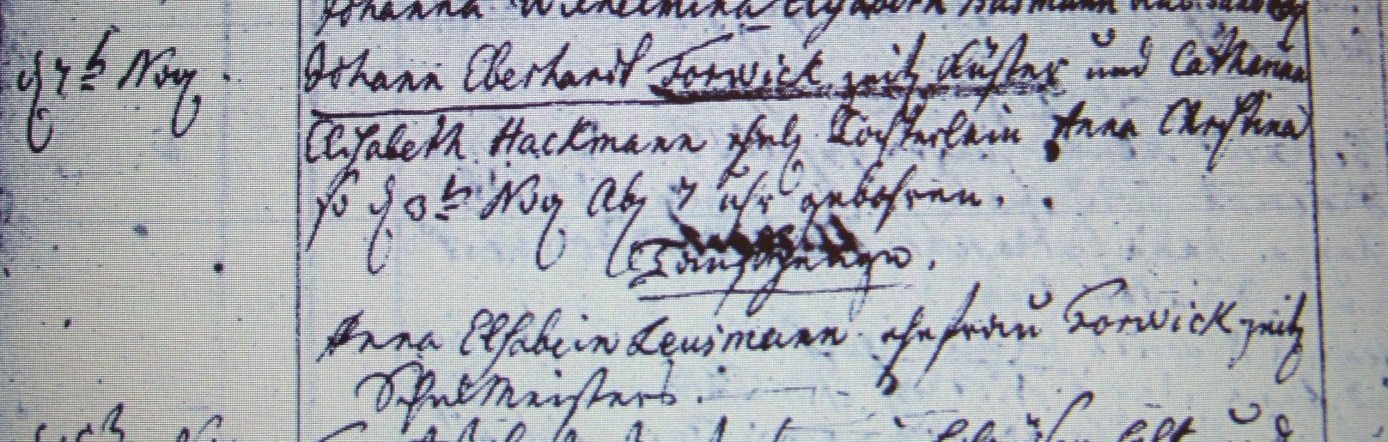 Johanna Wilhelmina Elisabeth
d 7t Nov. Johann Eberhardt Forwick zeitl Küster und Catharina
Elisabeth Hackmann ehel Töchterlein Anna Christina
so d 3t Nov Ab 7 uhr gebohren.
Taufzeugen.
Anna Elsabein Leusmann ehefrau Forwick zeitl
SchulMeisters.